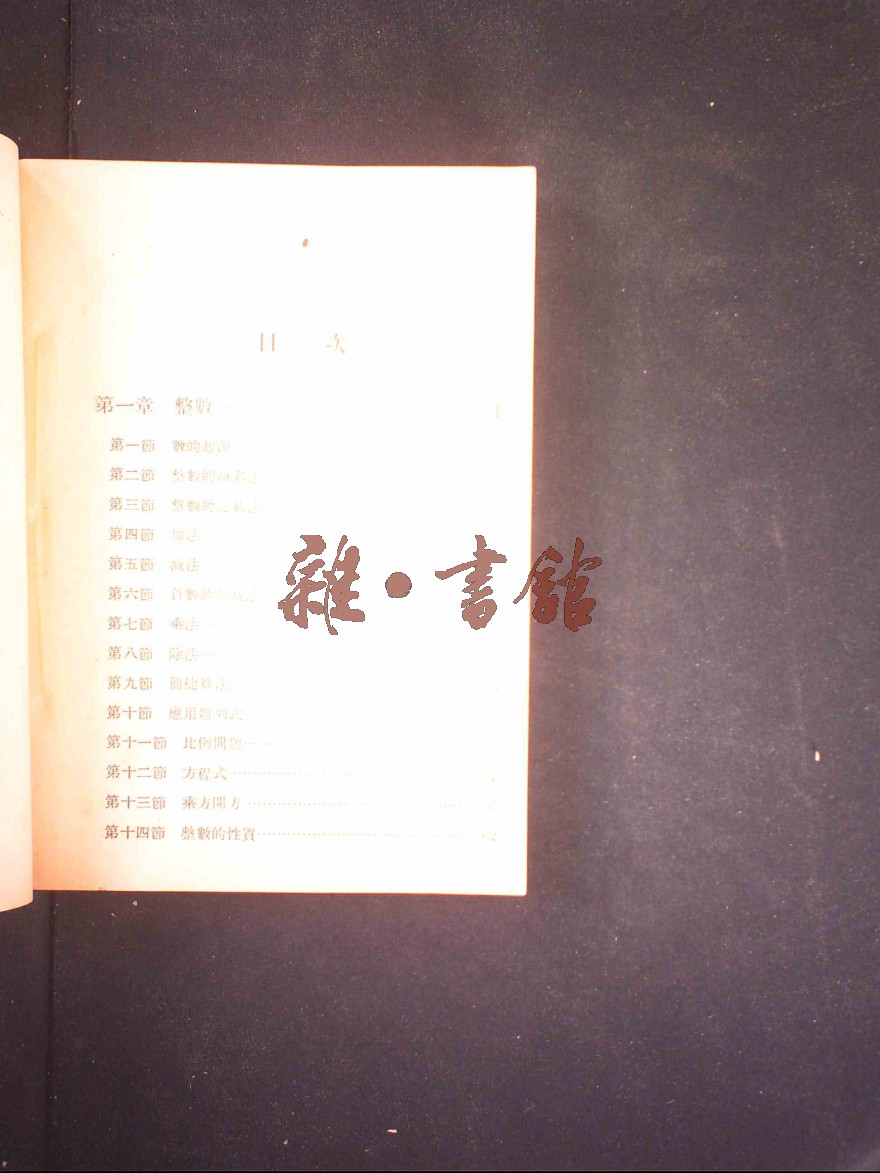 目 次
第一章 整數 1
第一節 數的起源
第二節 整數的命名法
第三節 整數的記數法
第四節 加法
第五節 減法
第六節
第七節 乘法
第八節 除法
第九節 簡捷算法
第十節 應用題列式
第十一節 比例問題
第十二節 方程式
第十三節 乘方開方
第十四節 整數的性質
雜·書館